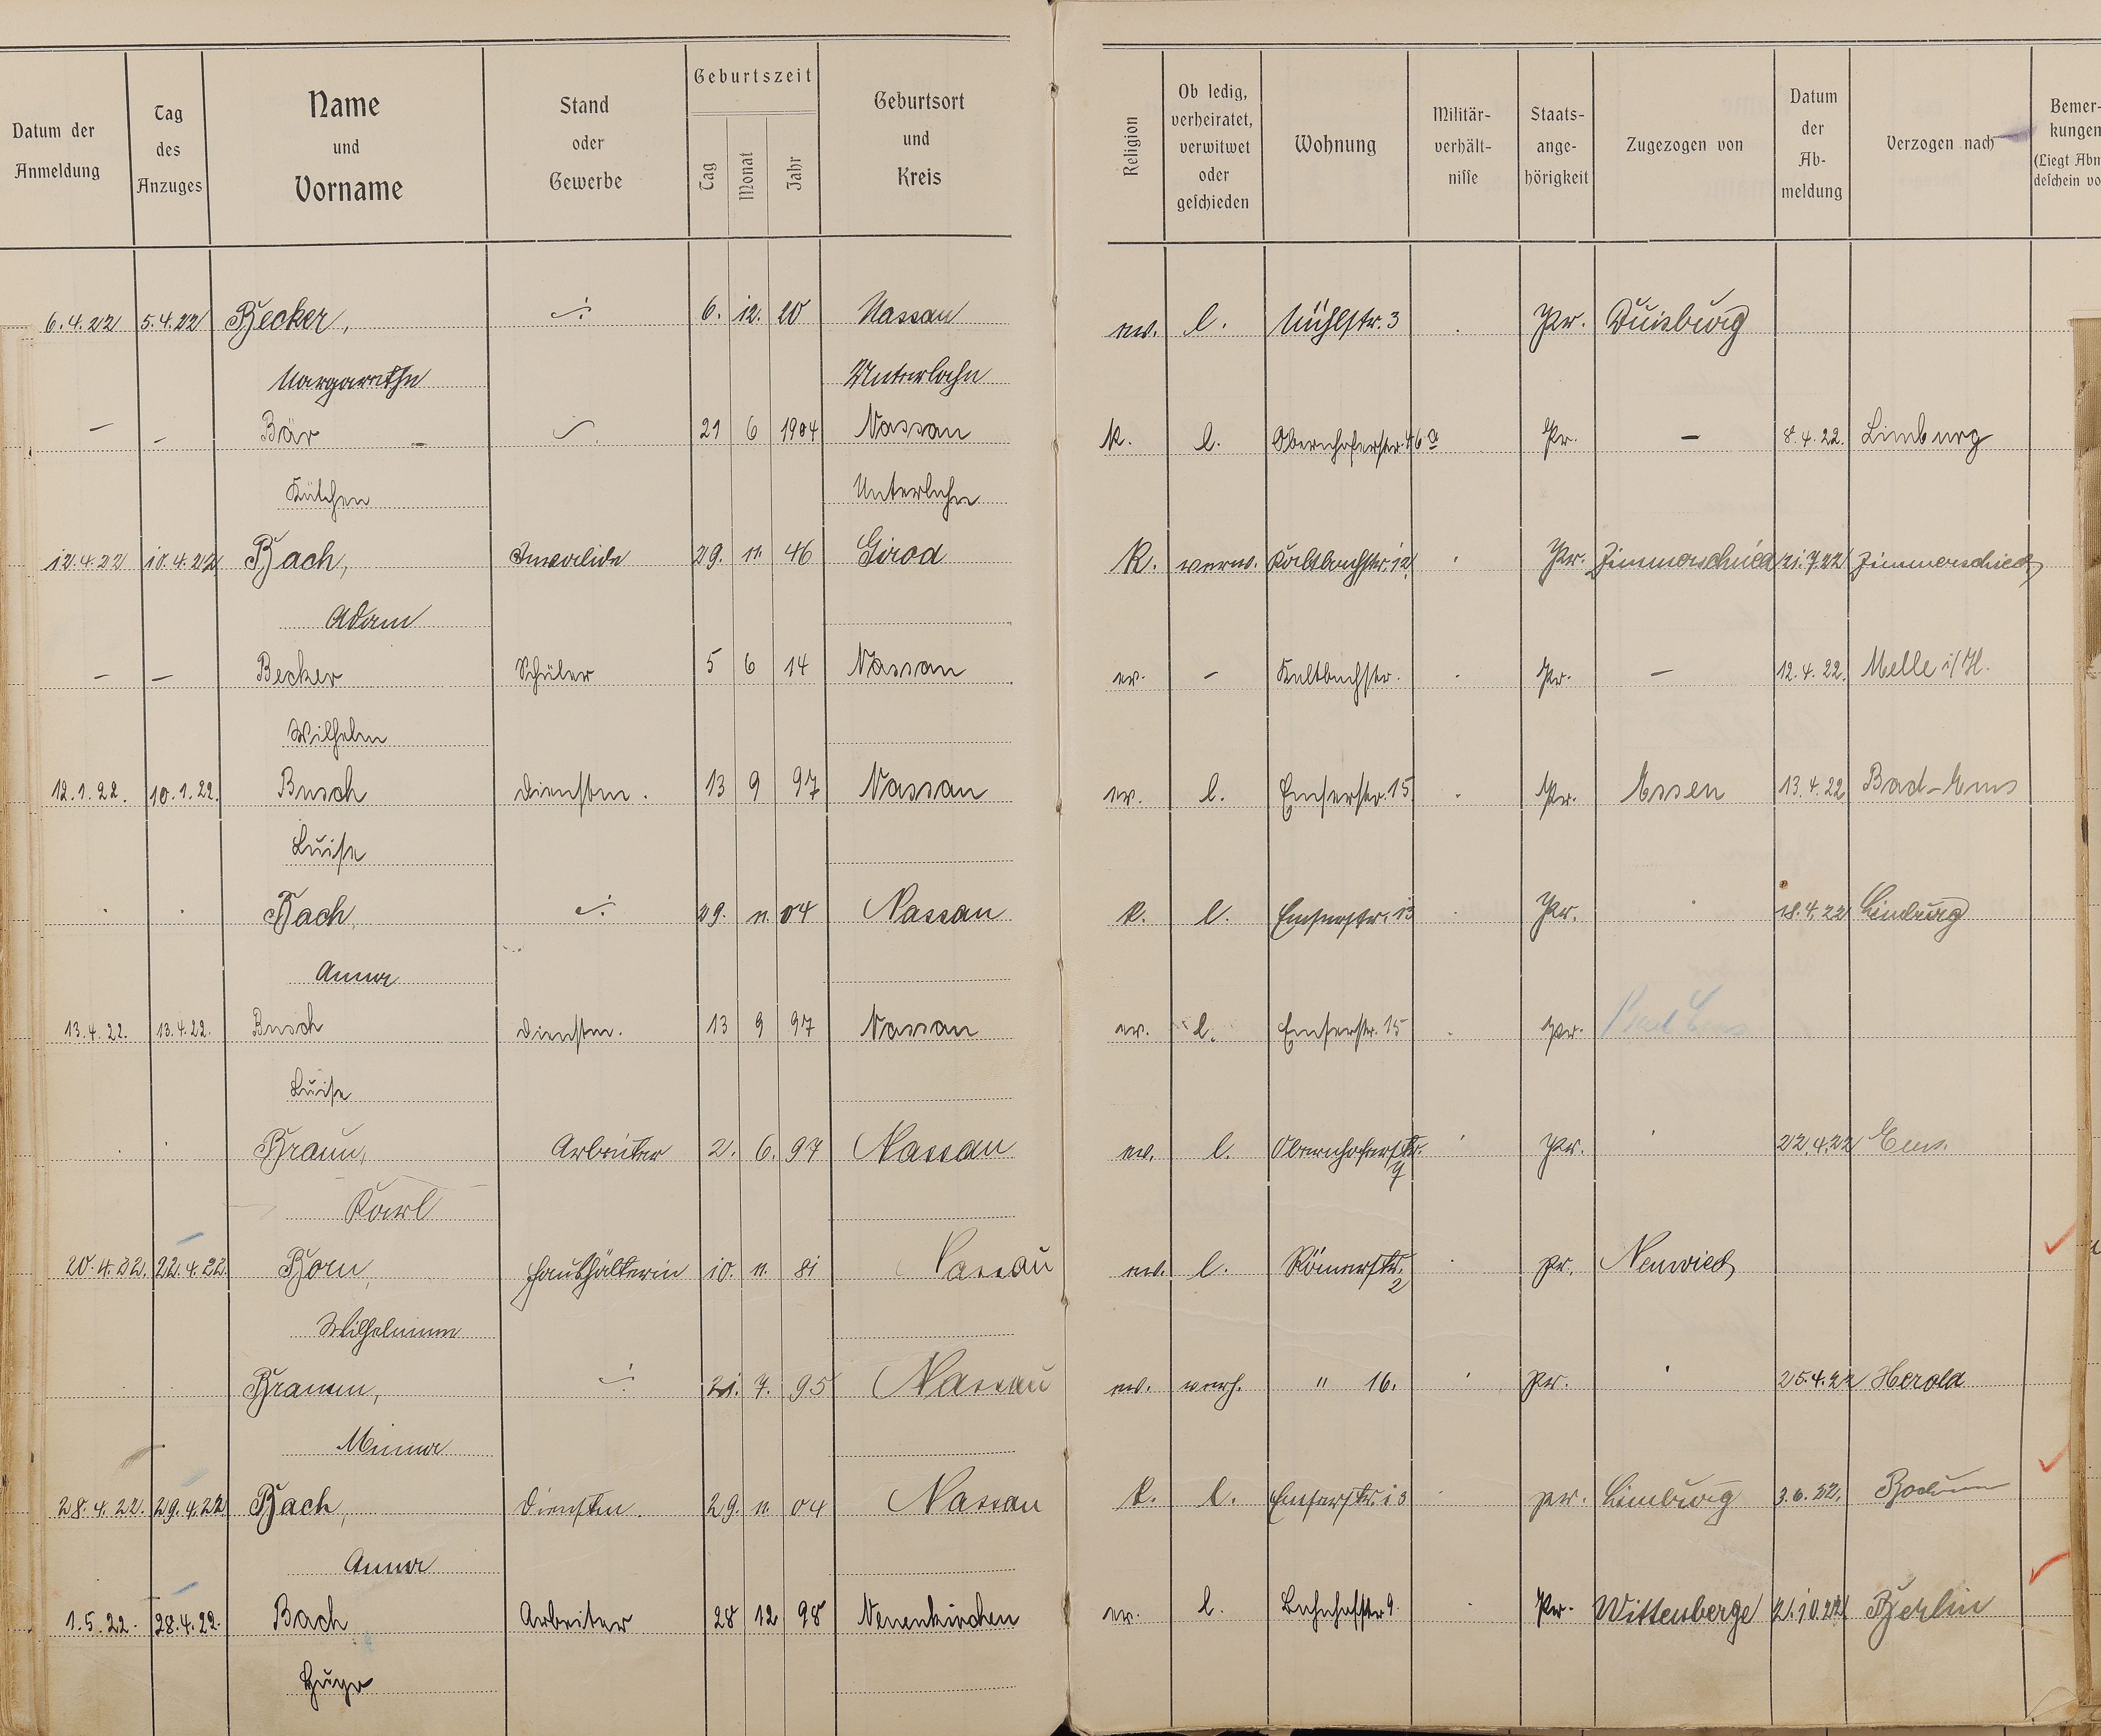 Datum der Anmeldung | Tag des Anzuges | Name und Vorname | Stand oder Gewerbe | Geburtszeit Tag Monat Jahr | Geburtsort und Kreis | Religion | Ob ledig, verheiratet, verwitwet oder geschieden | Wohnung | Militär-verhält-nisse | Staats-ange-hörigkeit | Zugezogen von | Datum der Ab-meldung | Verzogen nach | Bemer-kungen (Liegt Abm deschein vo
6.4.22 5.4.22 Becker, ./. 6. 12. 20 Nassau ev. l. Mühlstr. 3 . Pr. Duisburg
Margarethe Unterlahn
– – Bär – ./. 21 6 1904 Nassau K. l. Obernhoferstr. 46a Pr. – 8.4.22. Limburg
Kätchen Unterlahn
12.4.22 10.4.22 Bach, Invalide 29. 11. 46 Girod K. verw. Kaltbachstr. 12 . Pr. Zimmerschied 21.7.22 Zimmerschied
Adam
– – Becker Schüler 5 6 14 Nassau ev. – Kaltbachstr. . Pr. – 12.4.22. Melle i/H.
Wilhelm
12.1.22. 10.1.22. Busch Dienstm. 13 9 97 Nassau ev. l. Emserstr. 15 . Pr. Essen 13.4.22 Bad-Ems
Luise
. . Bach, ./. 29. 11. 04 Nassau K. l. Emserstr. 13 . Pr. . 18.4.22 Limburg
Anna
13.4.22. 13.4.22. Busch Dienstm. 13 9 97 Nassau ev. l. Emserstr. 15 . Pr. Bad Ems
Luise
. . Braun, Arbeiter 2. 6. 97 Nassau ev. l. Obernhoferstr. 7 . Pr. . 22.4.22 Ems.
Karl
20.4.22. 22.4.22. Born, Haushälterin 10. 11. 81 Nassau ev. l. Römerstr. 2 . Pr. Neuwied
Wilhelmine
. . Bramm, ./. 21. 7. 95 Nassau ev. verh. " 16. . Pr. . 25.4.22 Herold
Minna
28.4.22. 29.4.22 Bach, Dienstm. 29. 11. 04 Nassau K. l. Emserstr. 13 . Pr. Limburg 3.6.32. Bochum
Anna
1.5.22. 28.4.22. Bach Arbeiter 28 12 98 Neuenkirchen ev. l. Bahnhofstr 9. . Pr. Wittenberge 2.10.22 Berlin
Hugo